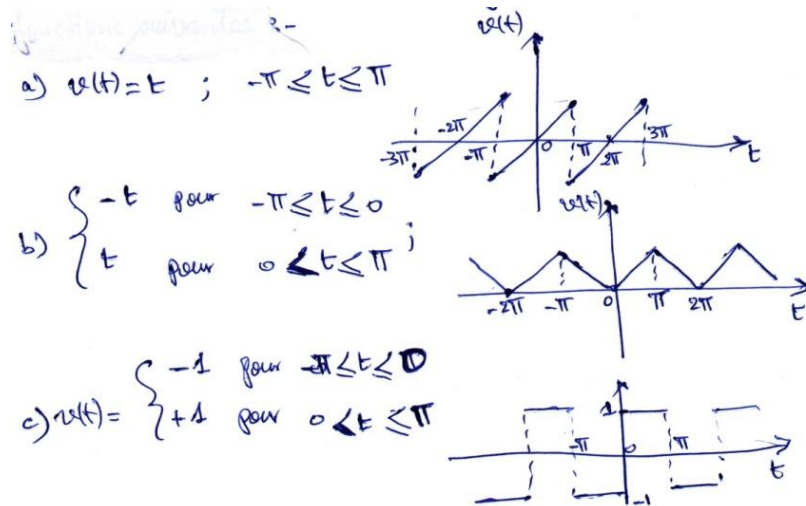 fonctions suivantes :-
a) v(t) = t ; -π ≤ t ≤ π
v(t)
-3π -2π -π 0 π 2π 3π t
b) { -t pour -π ≤ t ≤ 0
t pour 0 < t ≤ π ;
v(t)
-2π -π 0 π 2π t
c) v(t) = { -1 pour -π ≤ t ≤ 0
+1 pour 0 < t ≤ π
1
-π 0 π t
-1